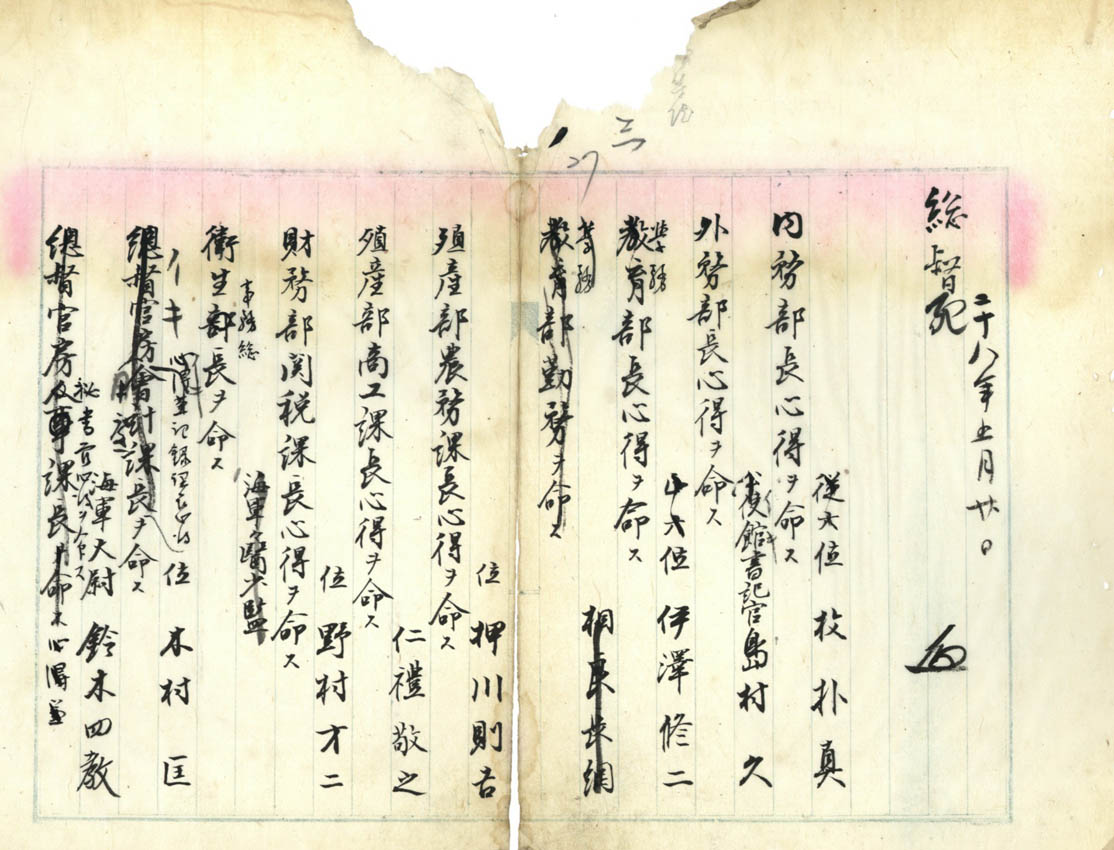 二十八年五月廿日
総督宛
従六位 牧朴真
内務部長心得ヲ命ス
書記官島村久
外務部長心得ヲ命ス
六位 伊澤修二
学務
教育部長心得ヲ命ス
相良長綱
学務
教育部勤務ヲ命ス
位 押川則吉
殖産部農務課長心得ヲ命ス
仁禮敬之
殖産部商工課長心得ヲ命ス
位 野村才二
財務部関税課長心得ヲ命ス
海軍々醫少監
事務総
衛生部長ヲ命ス
位 木村匡
イキ
總督官房會計課長ヲ命ス
海軍大尉 鈴木四教
秘書官心得ヲ命ス
總督官房 課長ヲ命ス
三
27